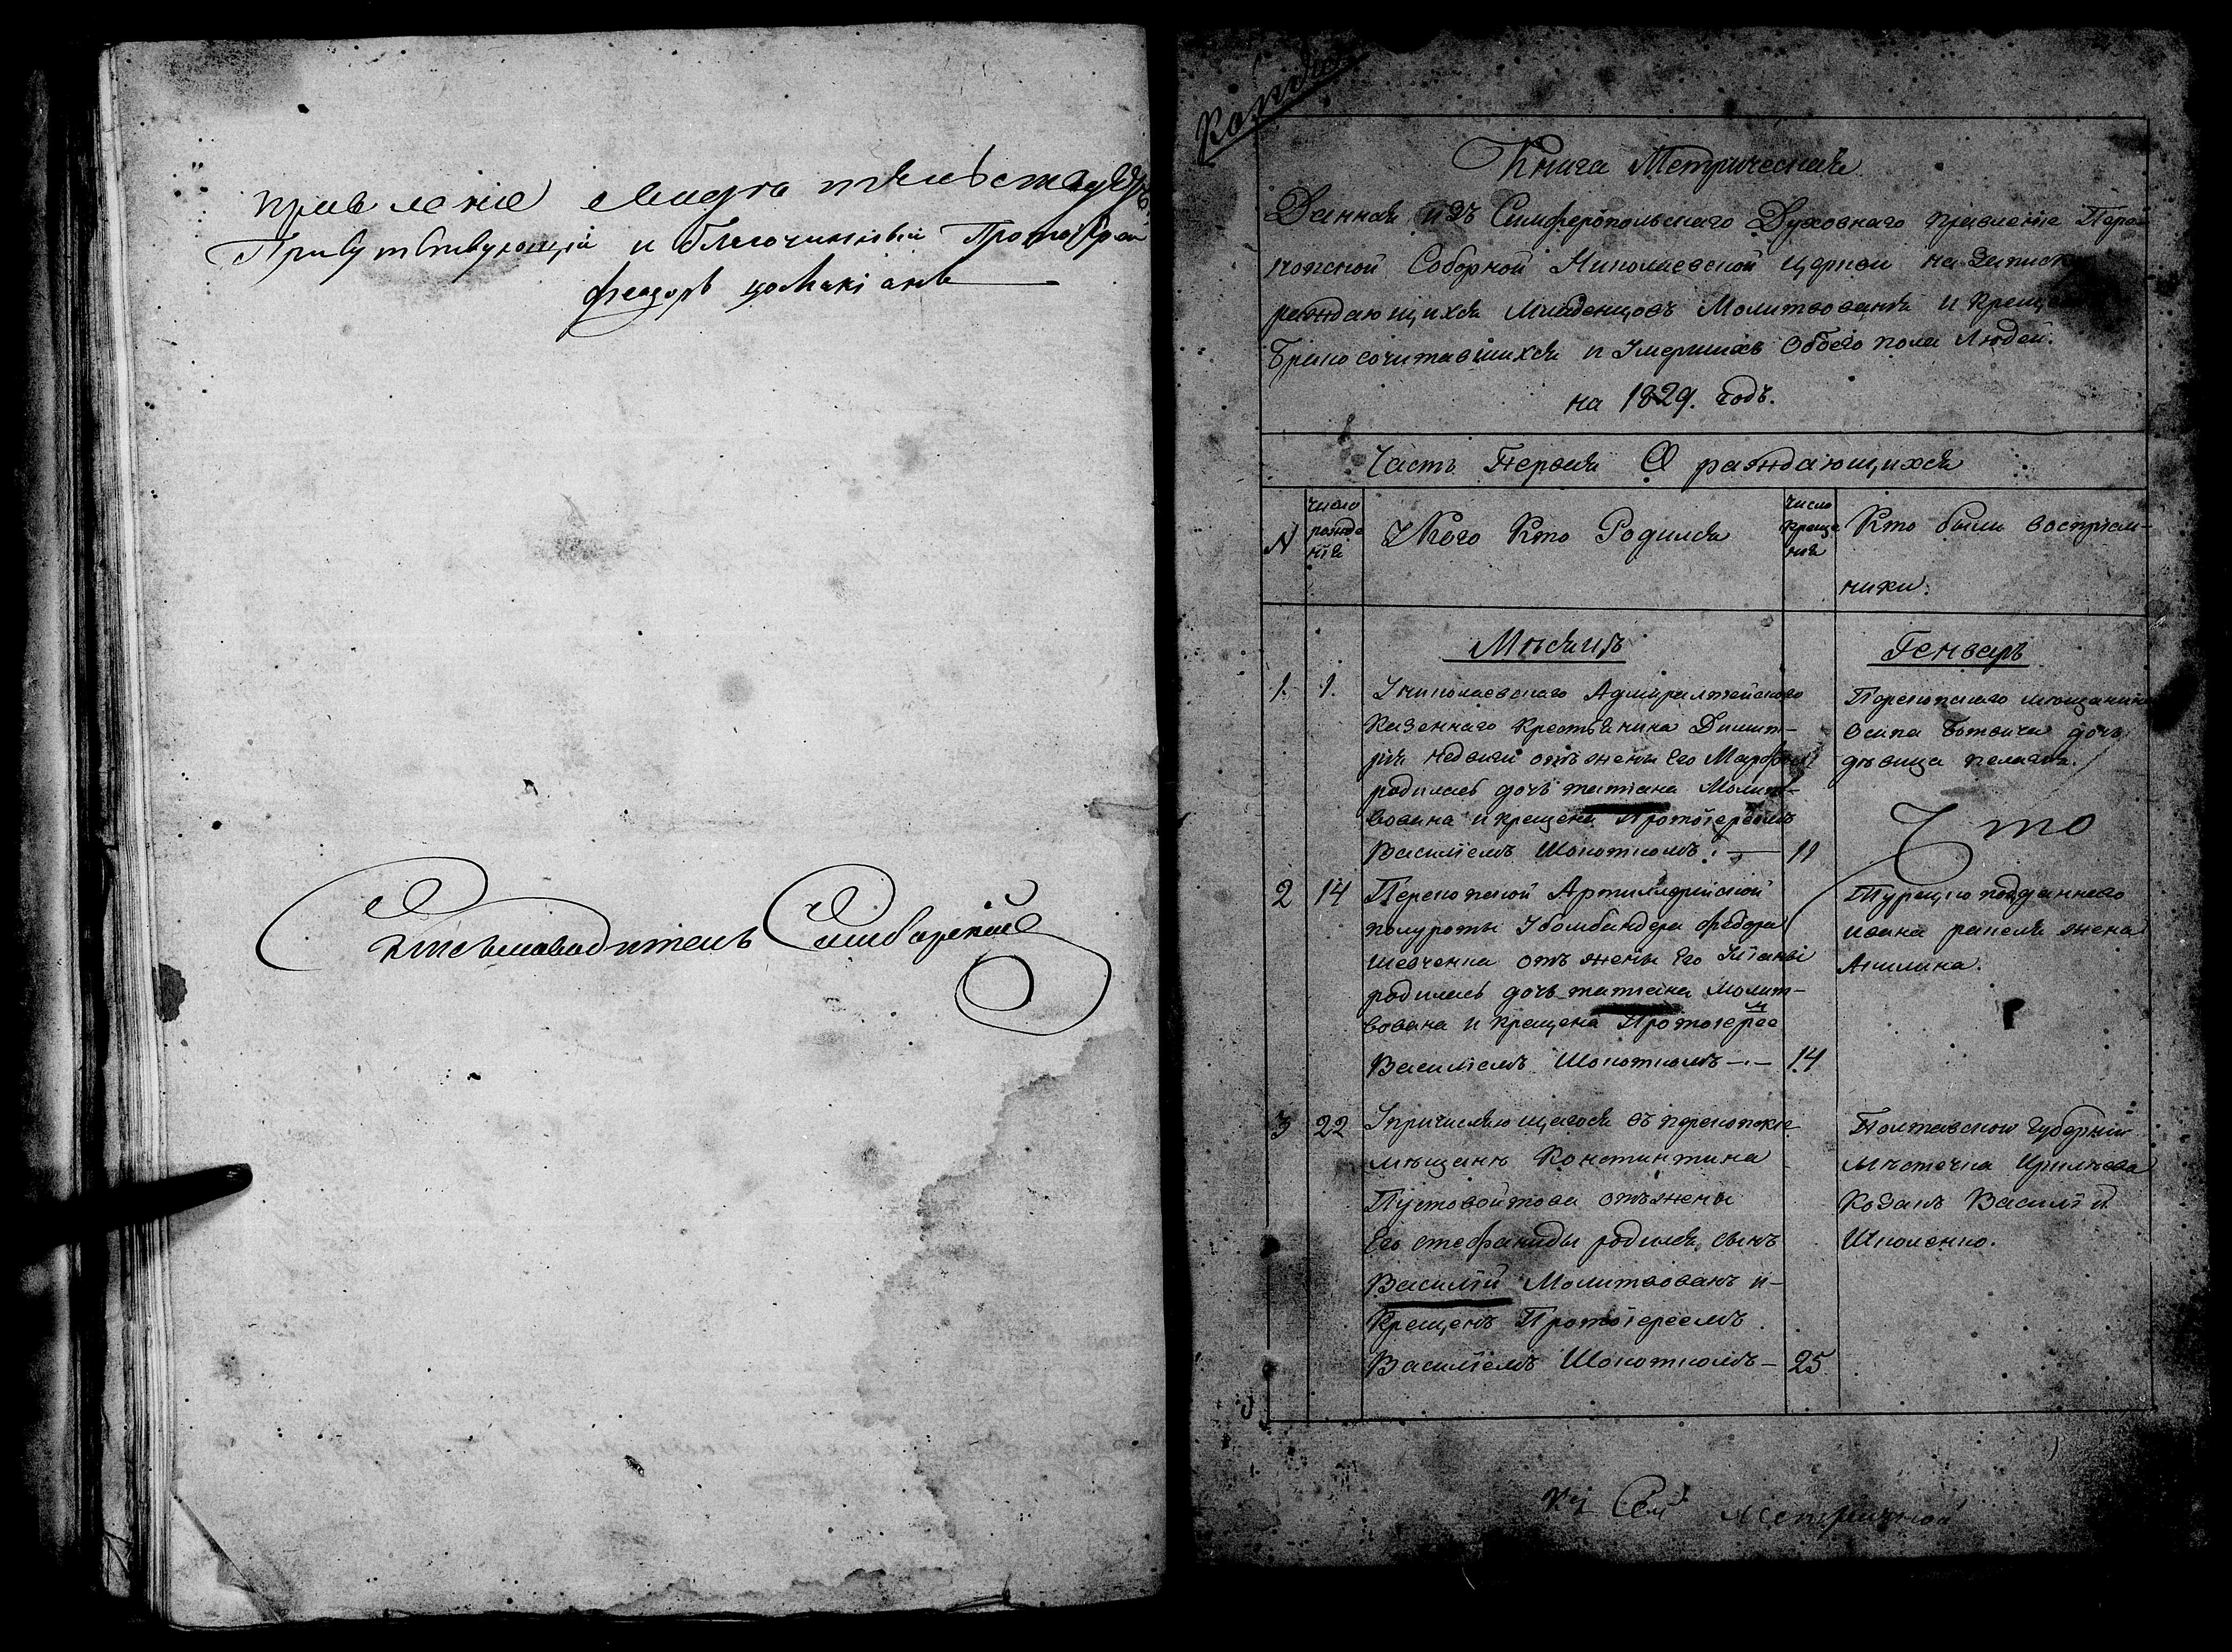 правление свидѣтельствуетъ
Присутствующій и благочинный Протоіерей
Феодоръ
Письмоводитель
Копія
Книга Метрическая
Данная изъ Симферопольскаго Духовнаго правленія Пере
копской Соборной Николаевской церкви на записку
раждающихся младенцовъ Молитвованія и Креще
Бракосочитавшихся и Умершихъ Обоего пола Людей.
на 1829. годъ.
Часть Первая О раждающихся
N
число рожде нія
У Кого Кто Родился
число креще нія
Кто были воспріем-
ники.
Мѣсяцъ
Генварь
1. 1. У николаевскаго Адмиралтейскаго
Казеннаго Крестьянина Димит-
рія отъ жены Его Марфы
родилась дочь татіана Молит-
вована и крещена Протоіереемъ
Василіемъ Шокоткомъ. 11
Перекопскаго мющанина
Осипа дочь
дѣвица пелагия.
2 14 Перекопской Артилерійской
полуроты У бомбандера Федора
Шевченка отъ жены Его
родилась дочь татіана Молит-
вована и крещена Протоіерее
м
Василіемъ Шокоткомъ — 14
Турецко подданнаго
ивана жена
Акилина.
3 22 У причисляющагося въ перекопскіе
мѣщане Константина
Пустовойтова отъ жены
Его стефаниды родился сынъ
Василій Молитвованъ и-
Крещенъ Протоіереемъ
Василіемъ Шокоткомъ — 25
Полтавской Губерніи
Мѣстечка
Козакъ Василій
что
Къ Сей метричной